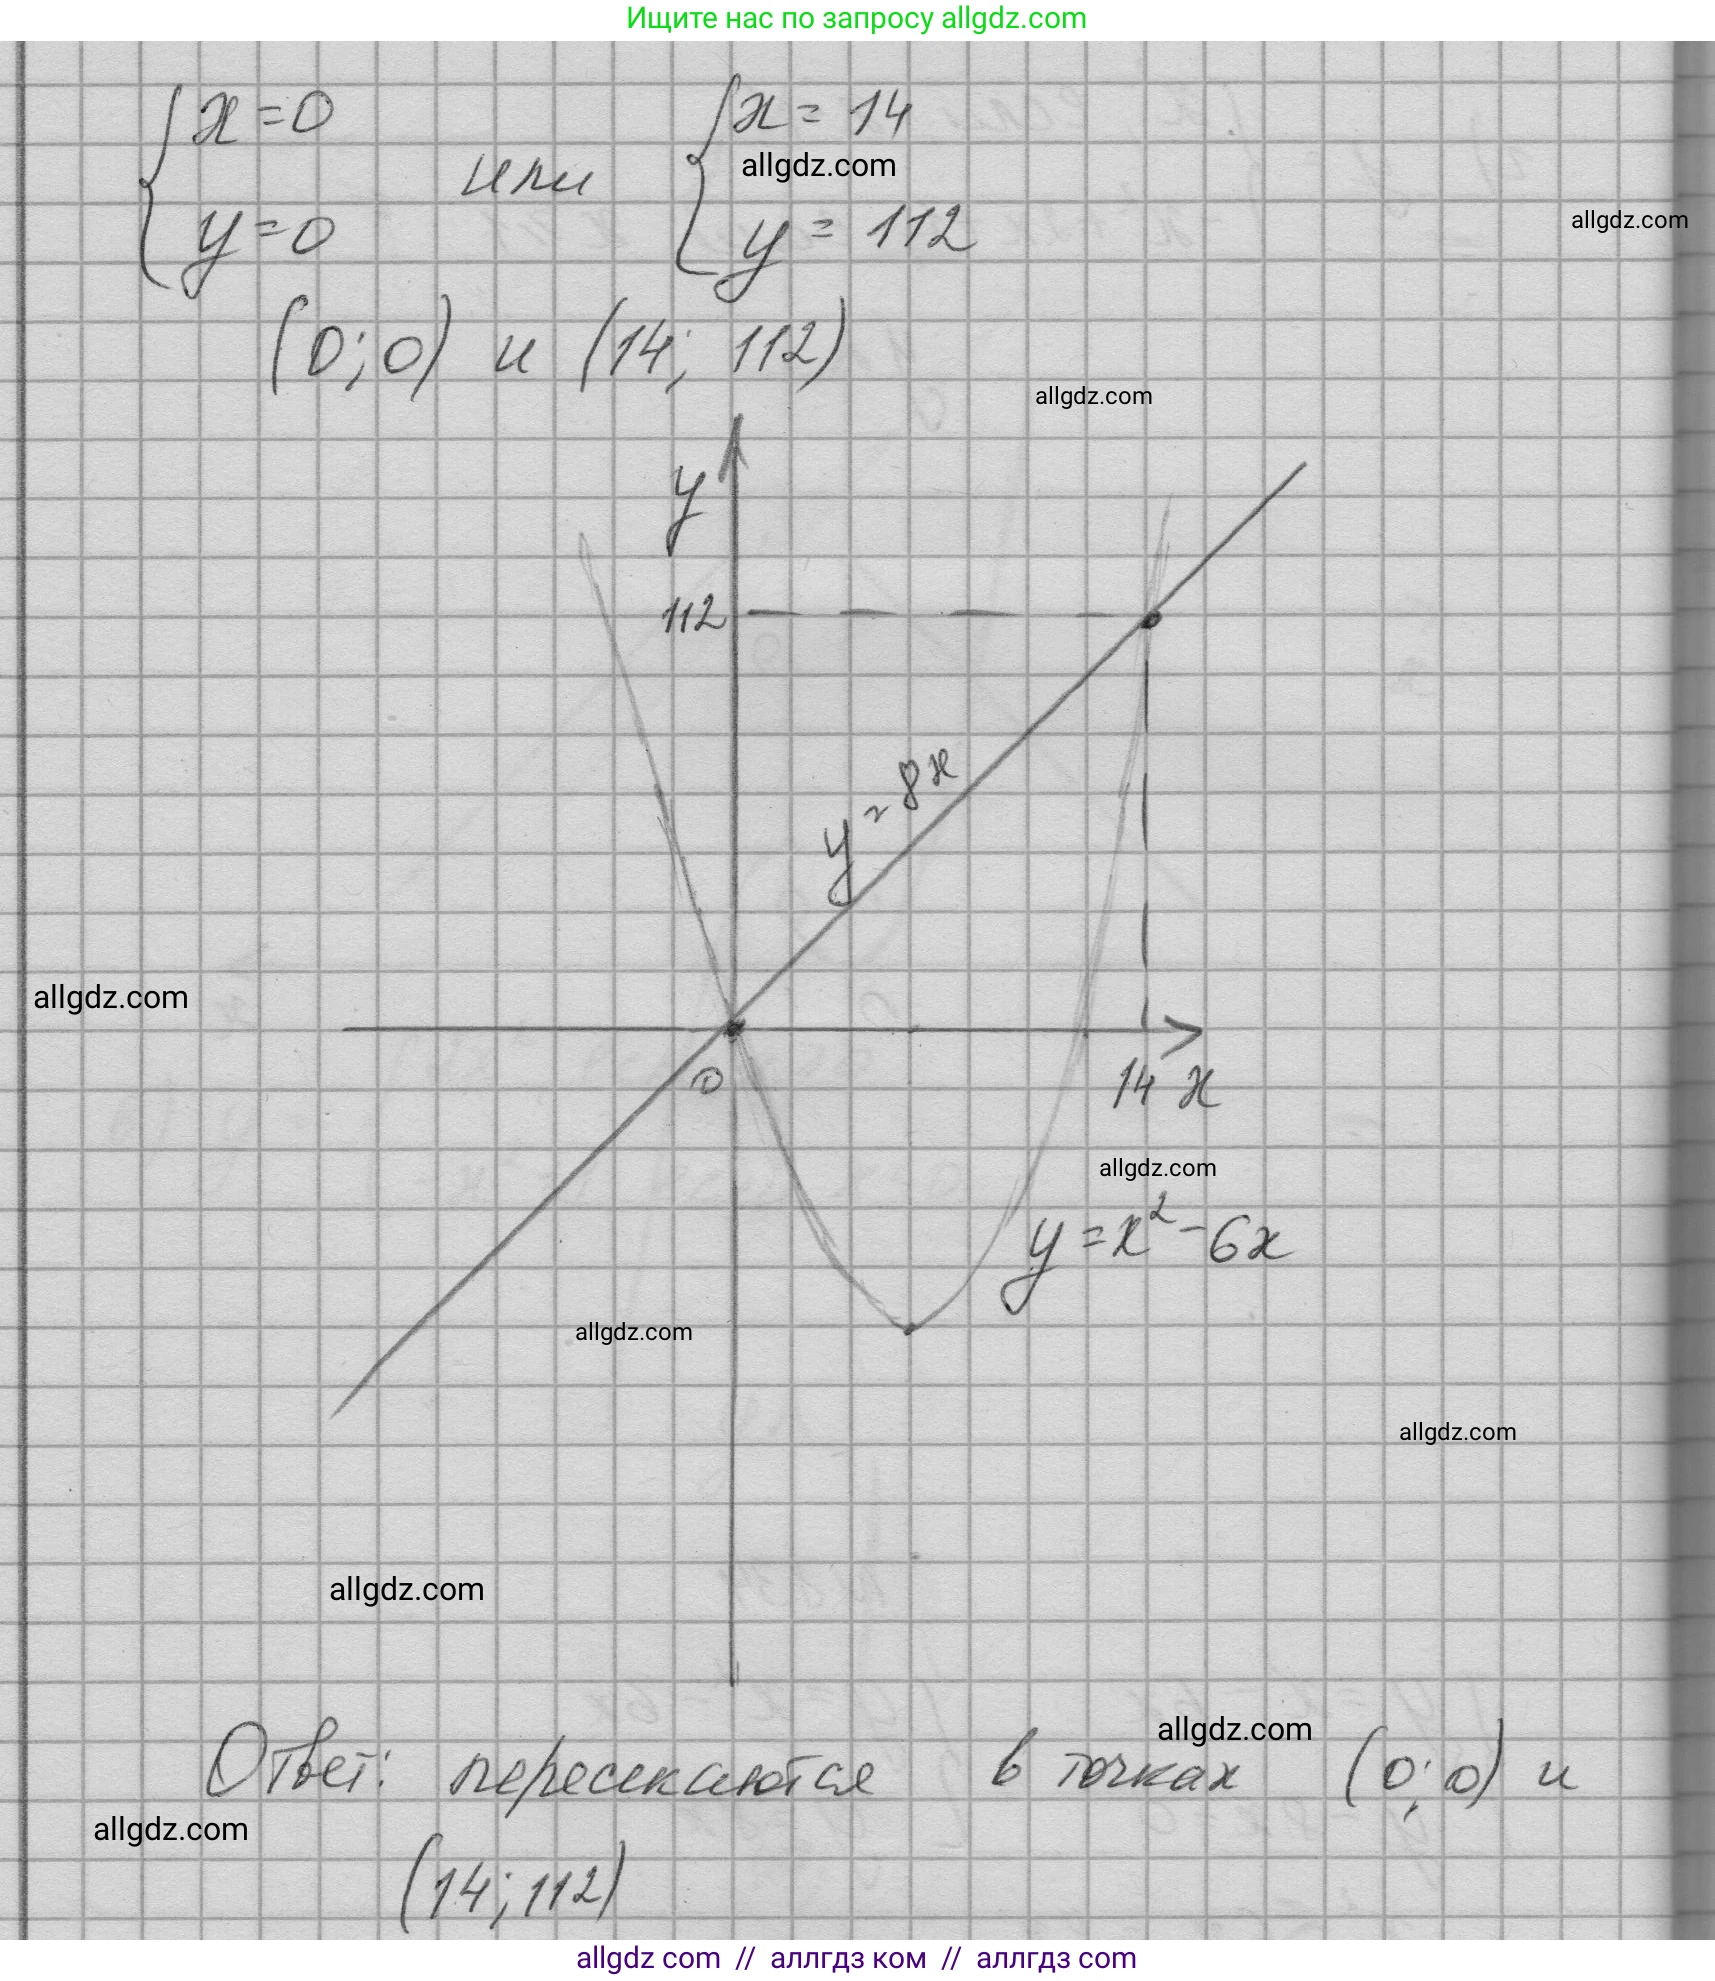 Ищите нас по запросу allgdz.com
{x=0 или {x=14
allgdz.com
allgdz.com
y=0 y=112
(0;0) и (14; 112)
allgdz.com
y
112
y=8x
allgdz.com
0
14 x
allgdz.com
y=x²-6x
allgdz.com
allgdz.com
allgdz.com
allgdz.com
Ответ: пересекаются в точках (0;0) и
allgdz.com
(14;112)
allgdz com // аллгдз ком // аллгдз com